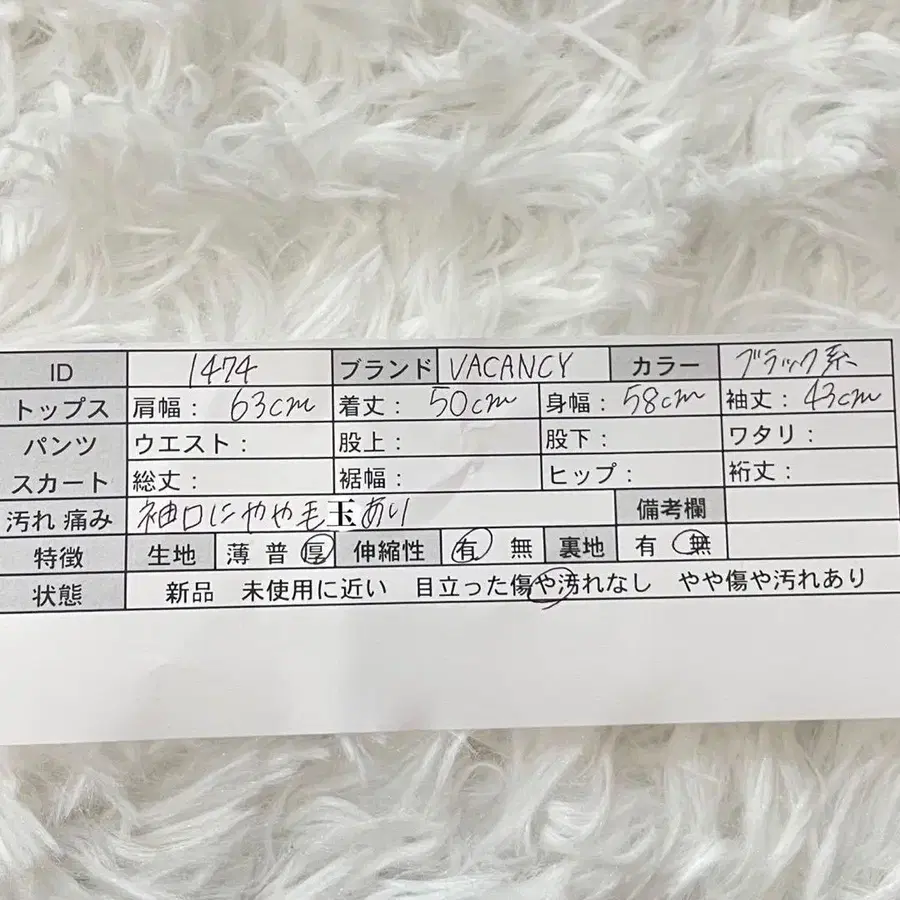 ID 1474 ブランド VACANCY カラー ブラック系
トップス 肩幅： 63cm 着丈： 50cm 身幅： 58cm 袖丈： 43cm
パンツ ウエスト： 股上： 股下： ワタリ：
スカート 総丈： 裾幅： ヒップ： 裄丈：
汚れ 痛み 袖口にやや毛玉あり 備考欄
特徴 生地 薄 普 厚 伸縮性 有 無 裏地 有 無
状態 新品 未使用に近い 目立った傷や汚れなし やや傷や汚れあり